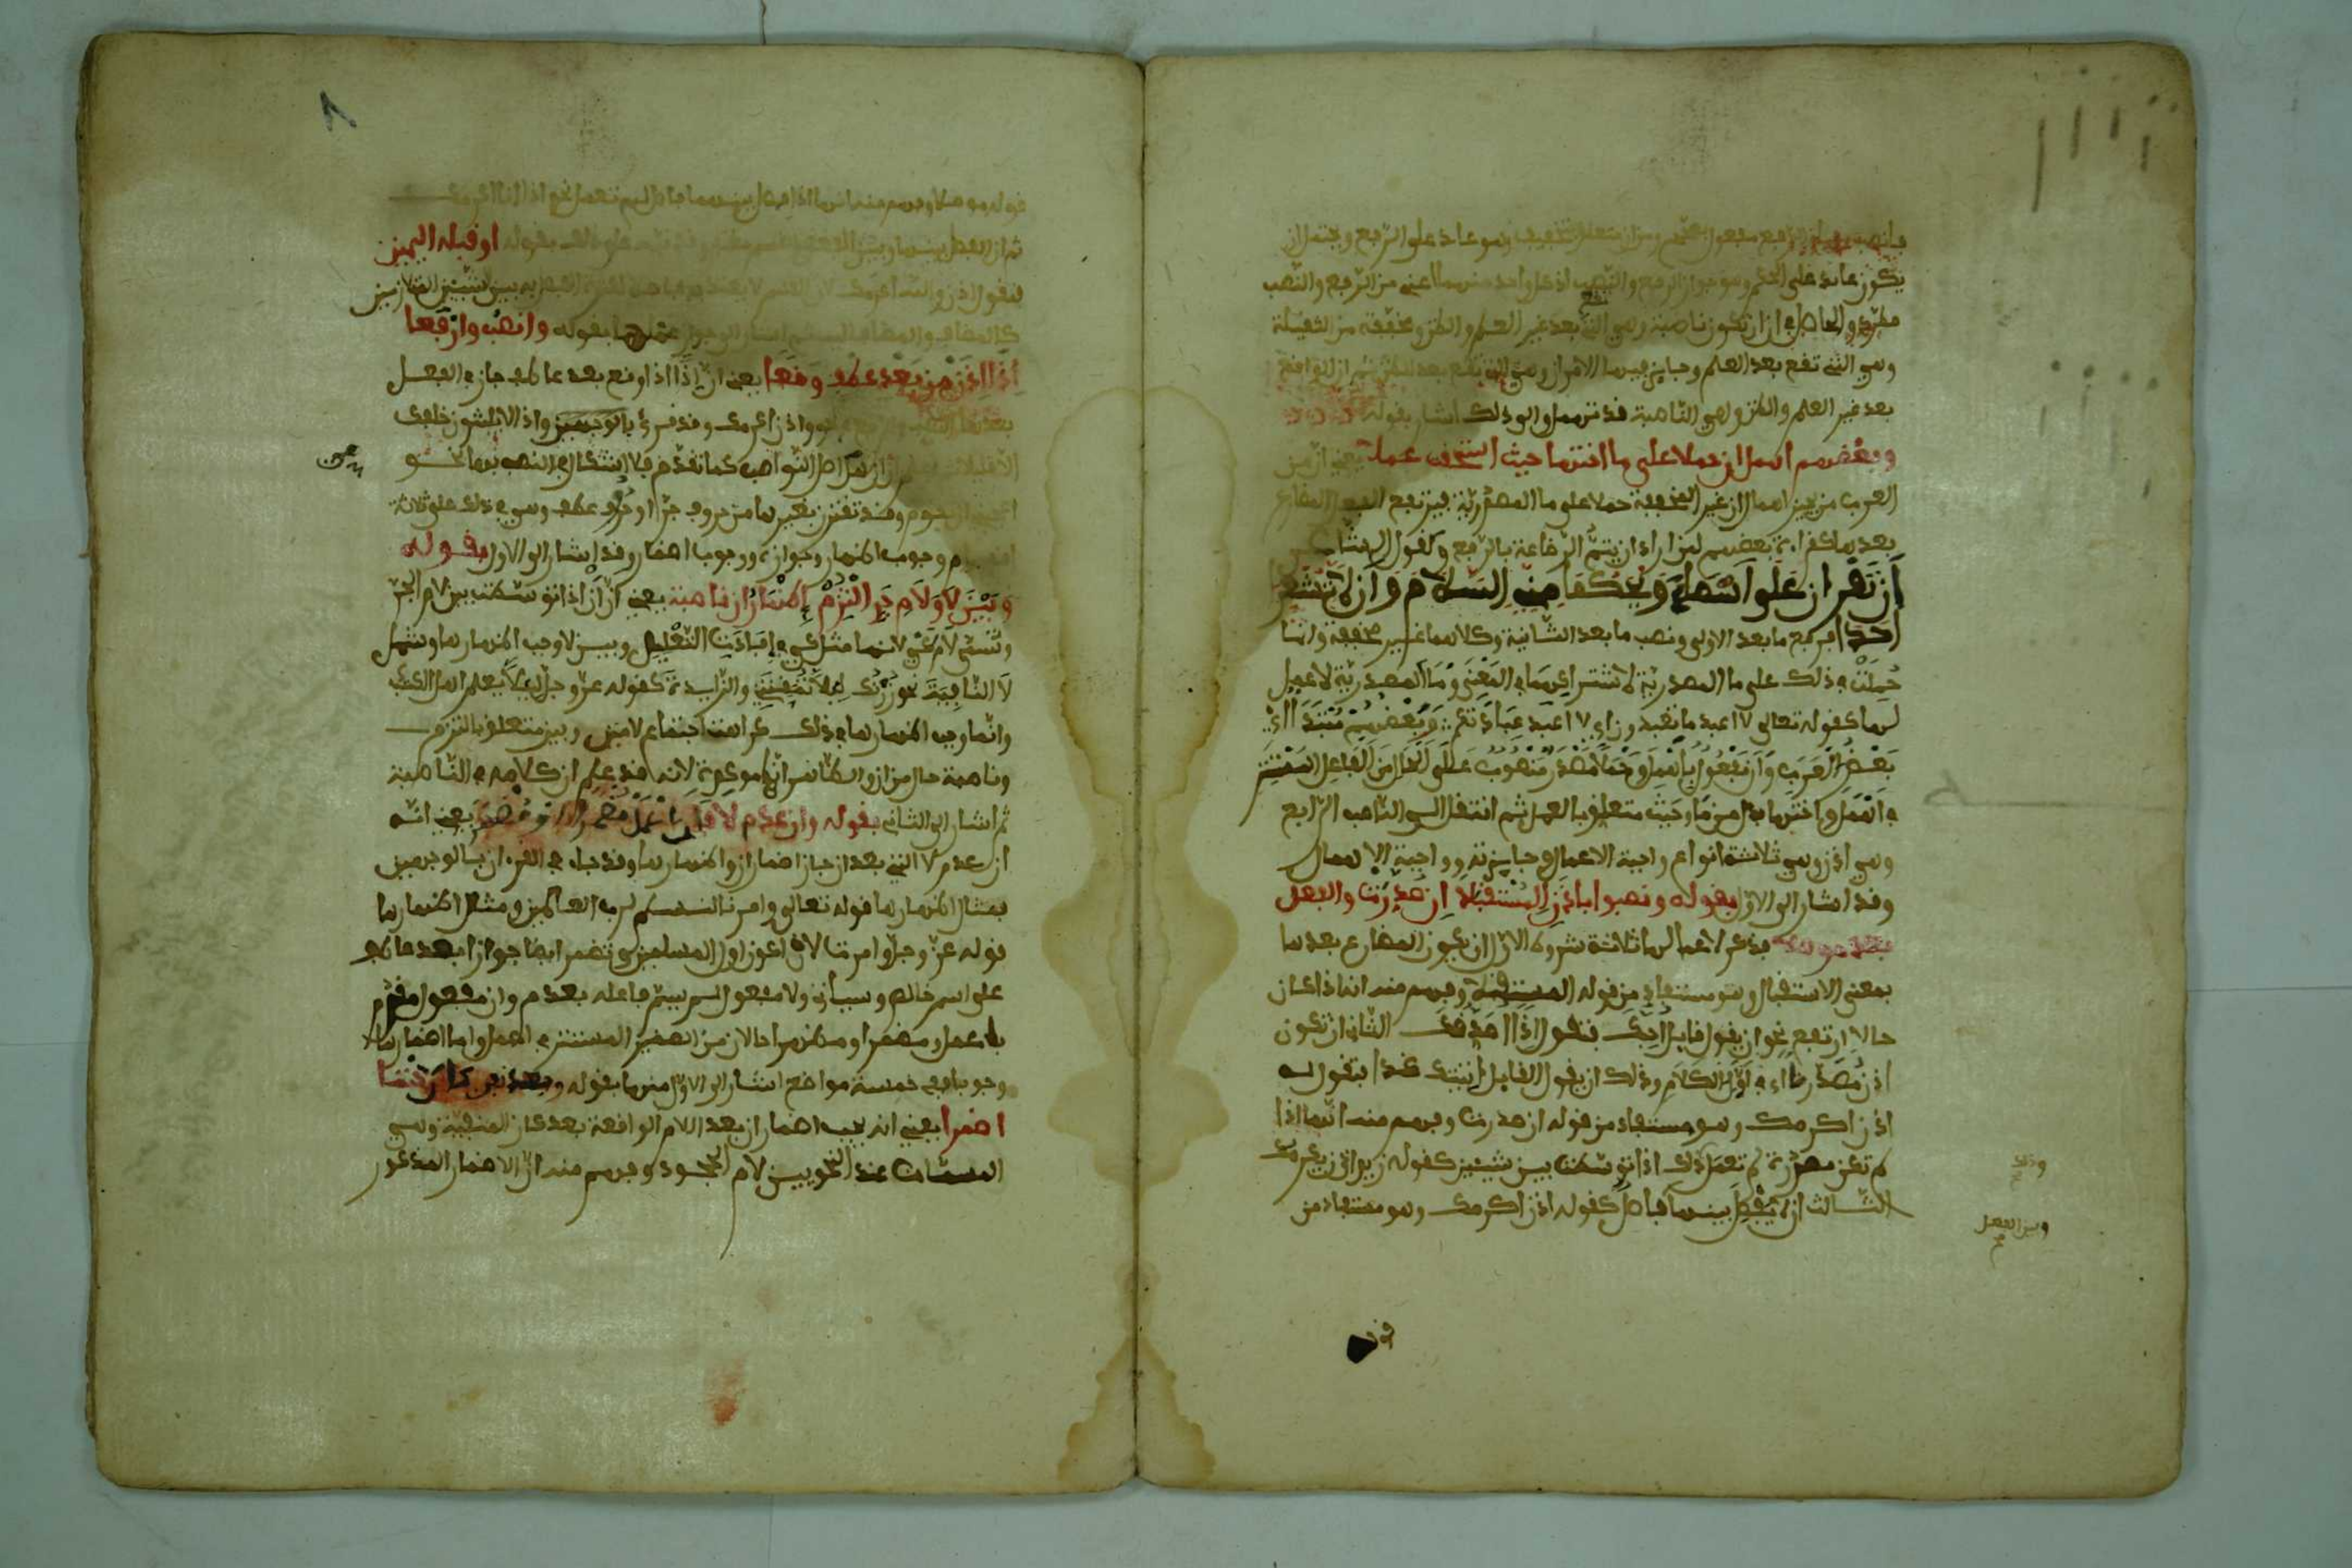 يكون عائد على الحكم وهو جواز الرفع والنصب اذ كل واحد منهما اعني من الرفع والنصب
مطرد والحاصل ان ان تكون ناصبة وهي التي بعد غير العلم والظن ومخففة من الثقيلة
وهي التي تقع بعد العلم وجايز فيها الامران وهي التي تقع بعد الظن ثم ان الواقعة
بعد غير العلم والظن وهي الناصبة قد تهمل والى ذلك اشار بقوله
وبعضهم اهمل ان حملا على ما اختها حيث استحقت عملا يعني ان من
العرب من يجيز اهمال ان غير المخففة حملا على ما المصدرية فيرتفع الفعل المضارع
بعدها كقراءة بعضهم لمن اراد ان يتم الرضاعة بالرفع وكقول الشاعر
ان تقرءان على اسماء ويحكما مني السلام وان لا تشعرا
احدا فرفع ما بعد الاولى ونصب ما بعد الثانية وكلاهما غير مخففة وانما
حملت في ذلك على ما المصدرية لاشتراكهما في المعنى وما المصدرية لا عمل
لها كقوله تعالى لا اعبد ما تعبدون اي لا اعبد عبادتكم وبعضهم مبتدا اي
بعض العرب وان مفعول باهمل وحملا مصدر منصوب على الحال من الفاعل المستتر
في اهمل واختها بدل من ما وحيث متعلق بالعمل ثم انتقل الى الناصب الرابع
وهي اذن وهي ثلاثة انواع واجبة الاعمال وجايزته وواجبة الاهمال
وقد اشار الى الاول بقوله ونصبوا باذن المستقبلا ان صدرت والفعل
بعد موصلا فذكر لاعمالها ثلاثة شروط الاول ان يكون المضارع بعدها
بمعنى الاستقبال وهو مستفاد من قوله المستقبلا وفهم منه انه اذا كان
حالا ارتفع نحو ان يقول قايل احبك فتقول اذا اصدقك الثاني ان تكون
اذن مصدرة في اول الكلام وذلك ان يقول القايل اتيتك غدا فتقول له
اذن اكرمك وهو مستفاد من قوله ان صدرت وفهم منه انها اذا
لم تكن مصدرة لم تعمل وذلك اذا توسطت بين شيئين كقوله زيد اذن يكرمك
الثالث ان لا يفصل بينهما فاصل كقوله اذن اكرمك وهو مستفاد من
وذلك
وبين الفعل
قوله
٨
قوله موصلا وفهم منه انهما اذا فصل بينهما فاصل لم تعمل نحو اذا انا اكرمك
ثم ان الفصل بينها وبين الفعل بالقسم مغتفر وقد نبه على ذلك بقوله او قبله اليمين
كالمضاف والمضاف اليه ثم اشار الى جواز عملها بقوله وانصب وارفعا
اذا اذن من بعد عطف وقعا يعني ان اذا اذا وقع بعد عاطف جاز في الفعل
بعدها النصب والرفع نحو واذن اكرمك وقد قرئ بالوجهين واذا لا يلبثون خلفك
الا قليلا ان ام النواصب كما تقدم فلا اشكال في النصب بها نحو
وقد تقترن بغيرها من حروف جر او حرف عطف وهي في ذلك على ثلاثة
اقسام وجوب اظهار وجوازه ووجوب اضمار وقد اشار الى الاول بقوله
وبين لا ولام جر التزم اظهار ان ناصبة يعني ان ان اذا توسطت بين لام الجر
وتسمى لام كي لانها مثل كي في افادت التعليل وبين لا وجب اظهارها وشمل
لا النافية نحو زرتك لئلا تمقتني والزايدة كقوله عز وجل لئلا يعلم اهل الكتاب
وانما وجب اظهارها في ذلك كراهت اجتماع لامين وبين متعلق بالتزم
وناصبة حال من ان والظاهر انها موكدة لانه قد علم ان كلامه في الناصبة
ثم اشار الى الثاني بقوله وان عدم لا فان اعمل مظهرا او مضمرا يعني انه
ان عدم لا التي بعد ان جاز اضمار ان واظهارها وقد جاء في القرءان بالوجهين
فمثال اضمارها قوله تعالى وامرنا لنسلم لرب العالمين ومثال اظهارها
قوله عز وجل وامرت لان اكون اول المسلمين وتضمر ايضا جوازا بعد عاطف
على اسم خالص وسياتي ولا مفعول لم يسم فاعله بعدم وان مفعول مقدم
باعمل ومضمرا ومظهرا حالان من الضمير المستتر في اعمل واما اضمارها
وجوبا ففي خمسة مواضع اشار الى الاول منها بقوله وبعد نفي كان حتما
اضمرا يعني انه يجب اضمار ان بعد اللام الواقعة بعد كان المنفية وهي
المسمات عند النحويين لام الجحود وفهم منه ان الاضمار المذكور